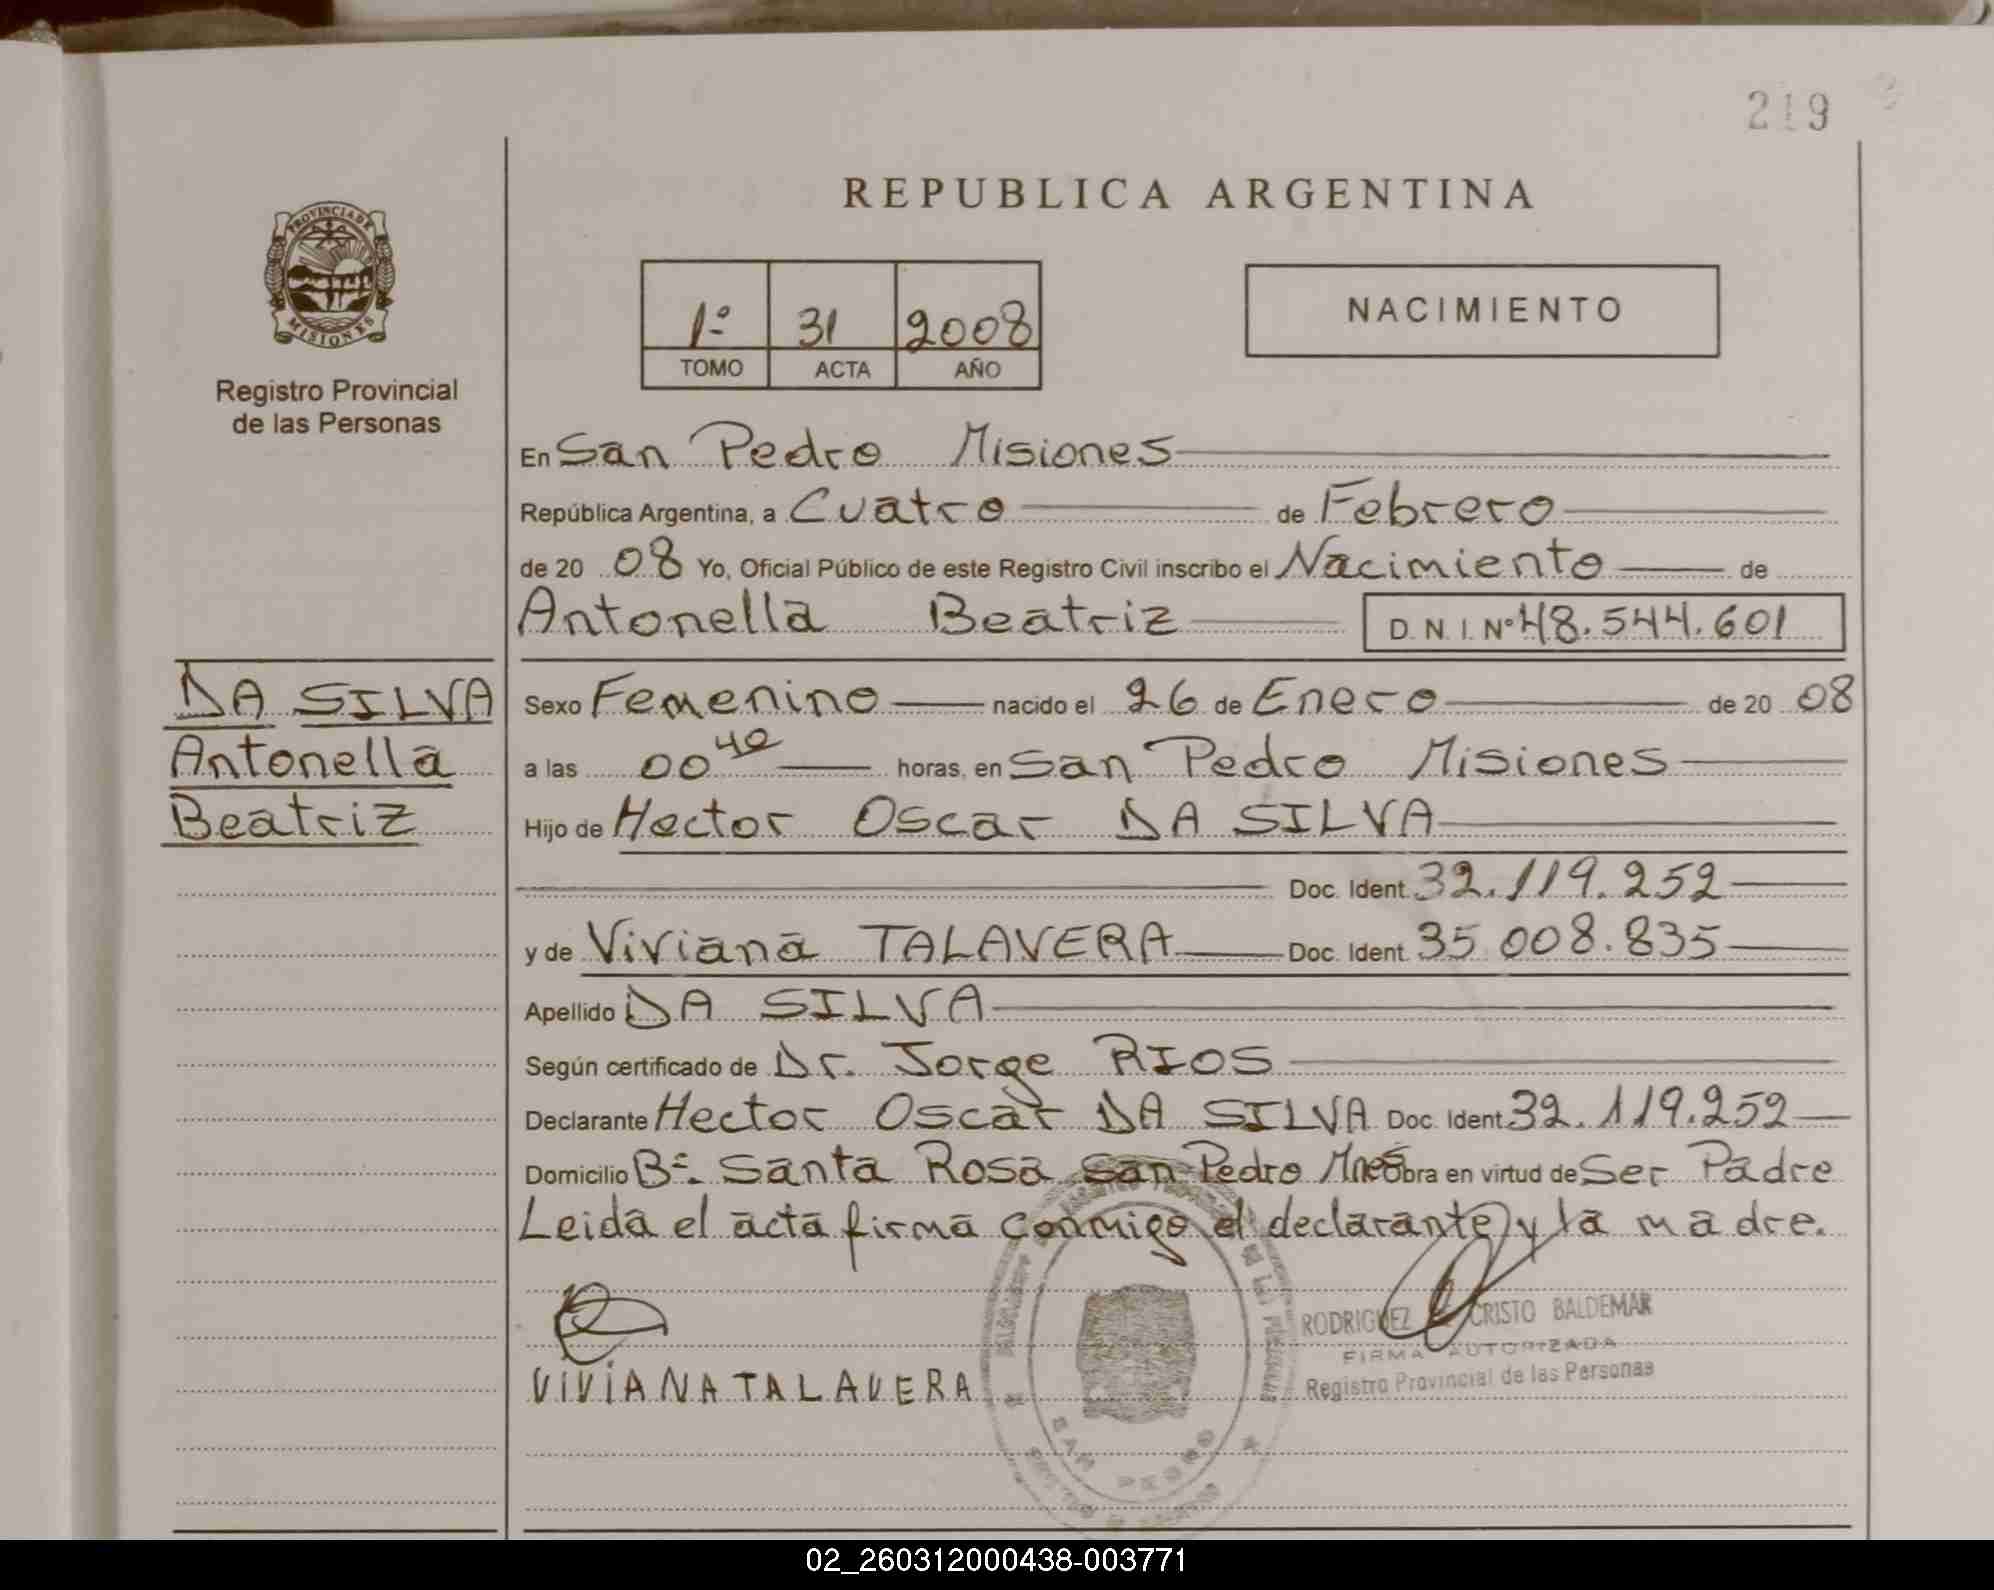 219
REPUBLICA ARGENTINA
PROVINCIA DE
MISIONES
Registro Provincial
de las Personas
1º 31 2008
TOMO ACTA AÑO
NACIMIENTO
En San Pedro Misiones
República Argentina, a Cuatro de Febrero
de 20 08 Yo, Oficial Público de este Registro Civil inscribo el Nacimiento de
Antonella Beatriz D. N. I. Nº 48.544.601
DA SILVA
Antonella
Beatriz
Sexo Femenino nacido el 26 de Enero de 20 08
a las 00 40 horas, en San Pedro Misiones
Hijo de Hector Oscar DA SILVA
Doc. Ident. 32.119.252
y de Viviana TALAVERA Doc. Ident. 35.008.835
Apellido DA SILVA
Según certificado de Dr. Jorge RIOS
Declarante Hector Oscar DA SILVA Doc. Ident. 32.119.252
Domicilio Bº. Santa Rosa San Pedro Mnes obra en virtud de Ser Padre
Leida el acta firma conmigo el declarante y la madre.
RODRIGUEZ CRISTO BALDEMAR
FIRMA AUTORIZADA
Registro Provincial de las Personas
VIVIANA TALAVERA
SAN PEDRO
02_260312000438-003771